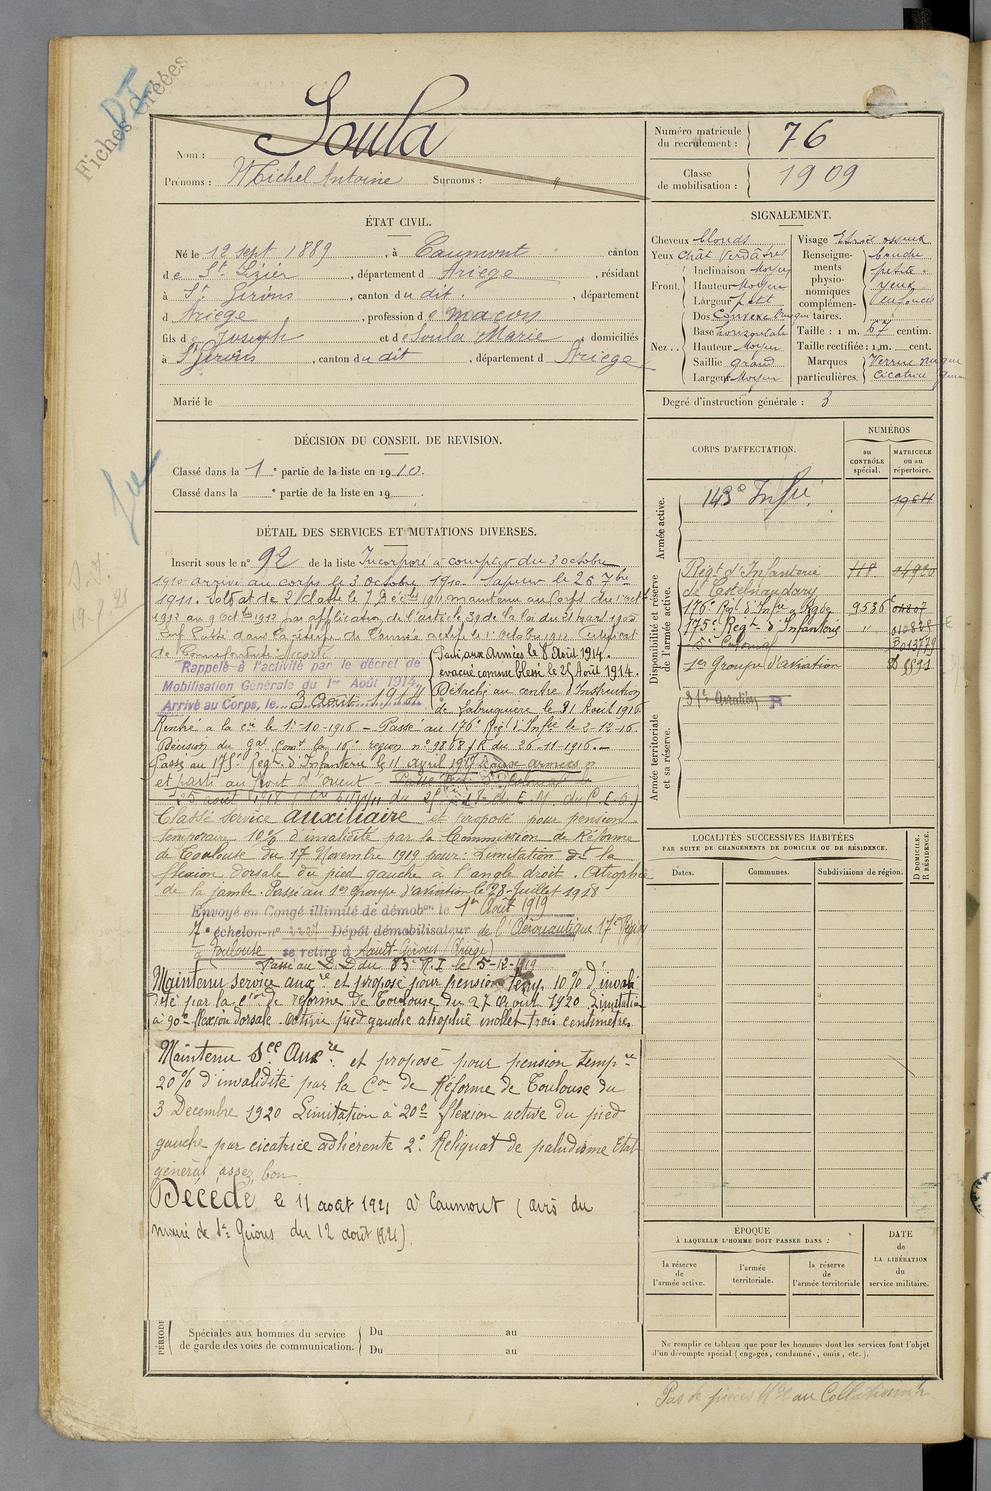 Fiches Créées
Nom : Soula
Prénoms : Michel Antoine Surnoms : "
Numéro matricule du recrutement : 76
Classe de mobilisation : 1909
ÉTAT CIVIL.
Né le 12 sept 1889, à Caumont canton
de St Lizier, département d Ariège, résidant
à St Girons, canton du dit, département
d Ariège, profession de maçon
fils de Joseph et de Soula Marie domiciliés
à St Girons, canton du dit, département d Ariège
Marié le
SIGNALEMENT.
Cheveux blonds
Yeux chat verdâtres
Front. Inclinaison Moyen
Hauteur Moyen
Largeur petit
Nez. Dos Convexe
Base horizontale
Hauteur Moyen
Saillie grand
Largeur Moyen
Visage Etroit osseux
Renseignements physionomiques complémentaires. bouche petite. yeux enfoncés
Taille : 1 m. 67 centim.
Taille rectifiée : 1 m. cent.
Marques particulières. Verrue
cicatrice
Degré d'instruction générale : 3
DÉCISION DU CONSEIL DE REVISION.
Classé dans la 1e partie de la liste en 1910.
Classé dans la e partie de la liste en 19 .
DÉTAIL DES SERVICES ET MUTATIONS DIVERSES.
Inscrit sous le n° 92 de la liste Incorporé à compter du 3 octobre
1910 arrivé au corps le 3 octobre 1910. Sapeur le 26 7bre
1911. Soldat de 2e classe le maintenu au Corps du 1er oct
1912 au 9 octbre 1912 par application de l'article 39 de la loi du 21 mars 1905
Passé dans la réserve de l'armée active le 1er octobre 1912. Certificat
de Bonne Conduite Accordé
Rappelé à l'activité par le décret de
Mobilisation Générale du 1er Août 1914,
Arrivé au Corps, le 3 août 1914
Parti aux Armées le 8 Août 1914.
évacué comme blessé le 25 Août 1914.
Détaché au centre d'Instruction
de Fabrègues le 21 Avril 1916
Rentré à la cie le 1-10-1916 - Passé au 176e Régt d'Infrie le 2-12-16.
Décision du gal Comt la 16e région n° 9868/R du 26-11-1916.
Passé au 175e Régt d'Infanterie le 11 avril 1917
et parti au front d'orient
Classé service auxiliaire et proposé pour pension
temporaire 10% d'invalidité par la Commission de Réforme
de Toulouse du 17 Novembre 1919 pour: Limitation de la
flexion dorsale du pied gauche à l'angle droit. Atrophie
de la jambe. Passé au 1er groupe d'aviation le 28 Juillet 1918
Envoyé en Congé illimité de démobon le 1er Août 1919
7e échelon n° Dépôt démobilisateur de l'Aéronautique 17e Région
à Toulouse se retire à Saint-Girons (Ariège)
Passé au D.D du 83e R.I. le 5-12-1919
Maintenu service auxre et proposé pour pension temp. 10% d'invali
dité par la con de réforme de Toulouse du 27 août 1920 Limitation
à 90° flexion dorsale active pied gauche atrophie mollet trois centimètres
Maintenu Sce Auxre et proposé pour pension tempre
20% d'invalidité par la Con de Réforme de Toulouse du
3 Decembre 1920 Limitation à 20° flexion active du pied
gauche par cicatrice adhérente 2° Reliquat de paludisme Etat
général assez bon
Décédé le 11 août 1921 à Caumont (avis du
maire de St Girons du 12 août 1921)
CORPS D'AFFECTATION.
NUMÉROS
au CONTRÔLE spécial.
MATRICULE ou au répertoire.
Armée active.
143e Infie
Disponibilité et réserve de l'armée active.
Régt d'Infanterie
de Castelnaudary 718
176e Régt d'Infie 9536
175e Régt d'Infanterie "
1er Groupe d'aviation
Armée territoriale et sa réserve.
Aviation R
LOCALITÉS SUCCESSIVES HABITÉES
PAR SUITE DE CHANGEMENTS DE DOMICILE OU DE RÉSIDENCE.
D DOMICILE.
R RÉSIDENCE.
Dates.
Communes.
Subdivisions de région.
ÉPOQUE
À LAQUELLE L'HOMME DOIT PASSER DANS :
la réserve de l'armée active.
l'armée territoriale.
la réserve de l'armée territoriale
DATE de LA LIBÉRATION du service militaire.
Spéciales aux hommes du service
de garde des voies de communication.
Du au
Du au
Ne remplir ce tableau que pour les hommes dont les services font l'objet
d'un décompte spécial (engagés, condamnés, omis, etc.).